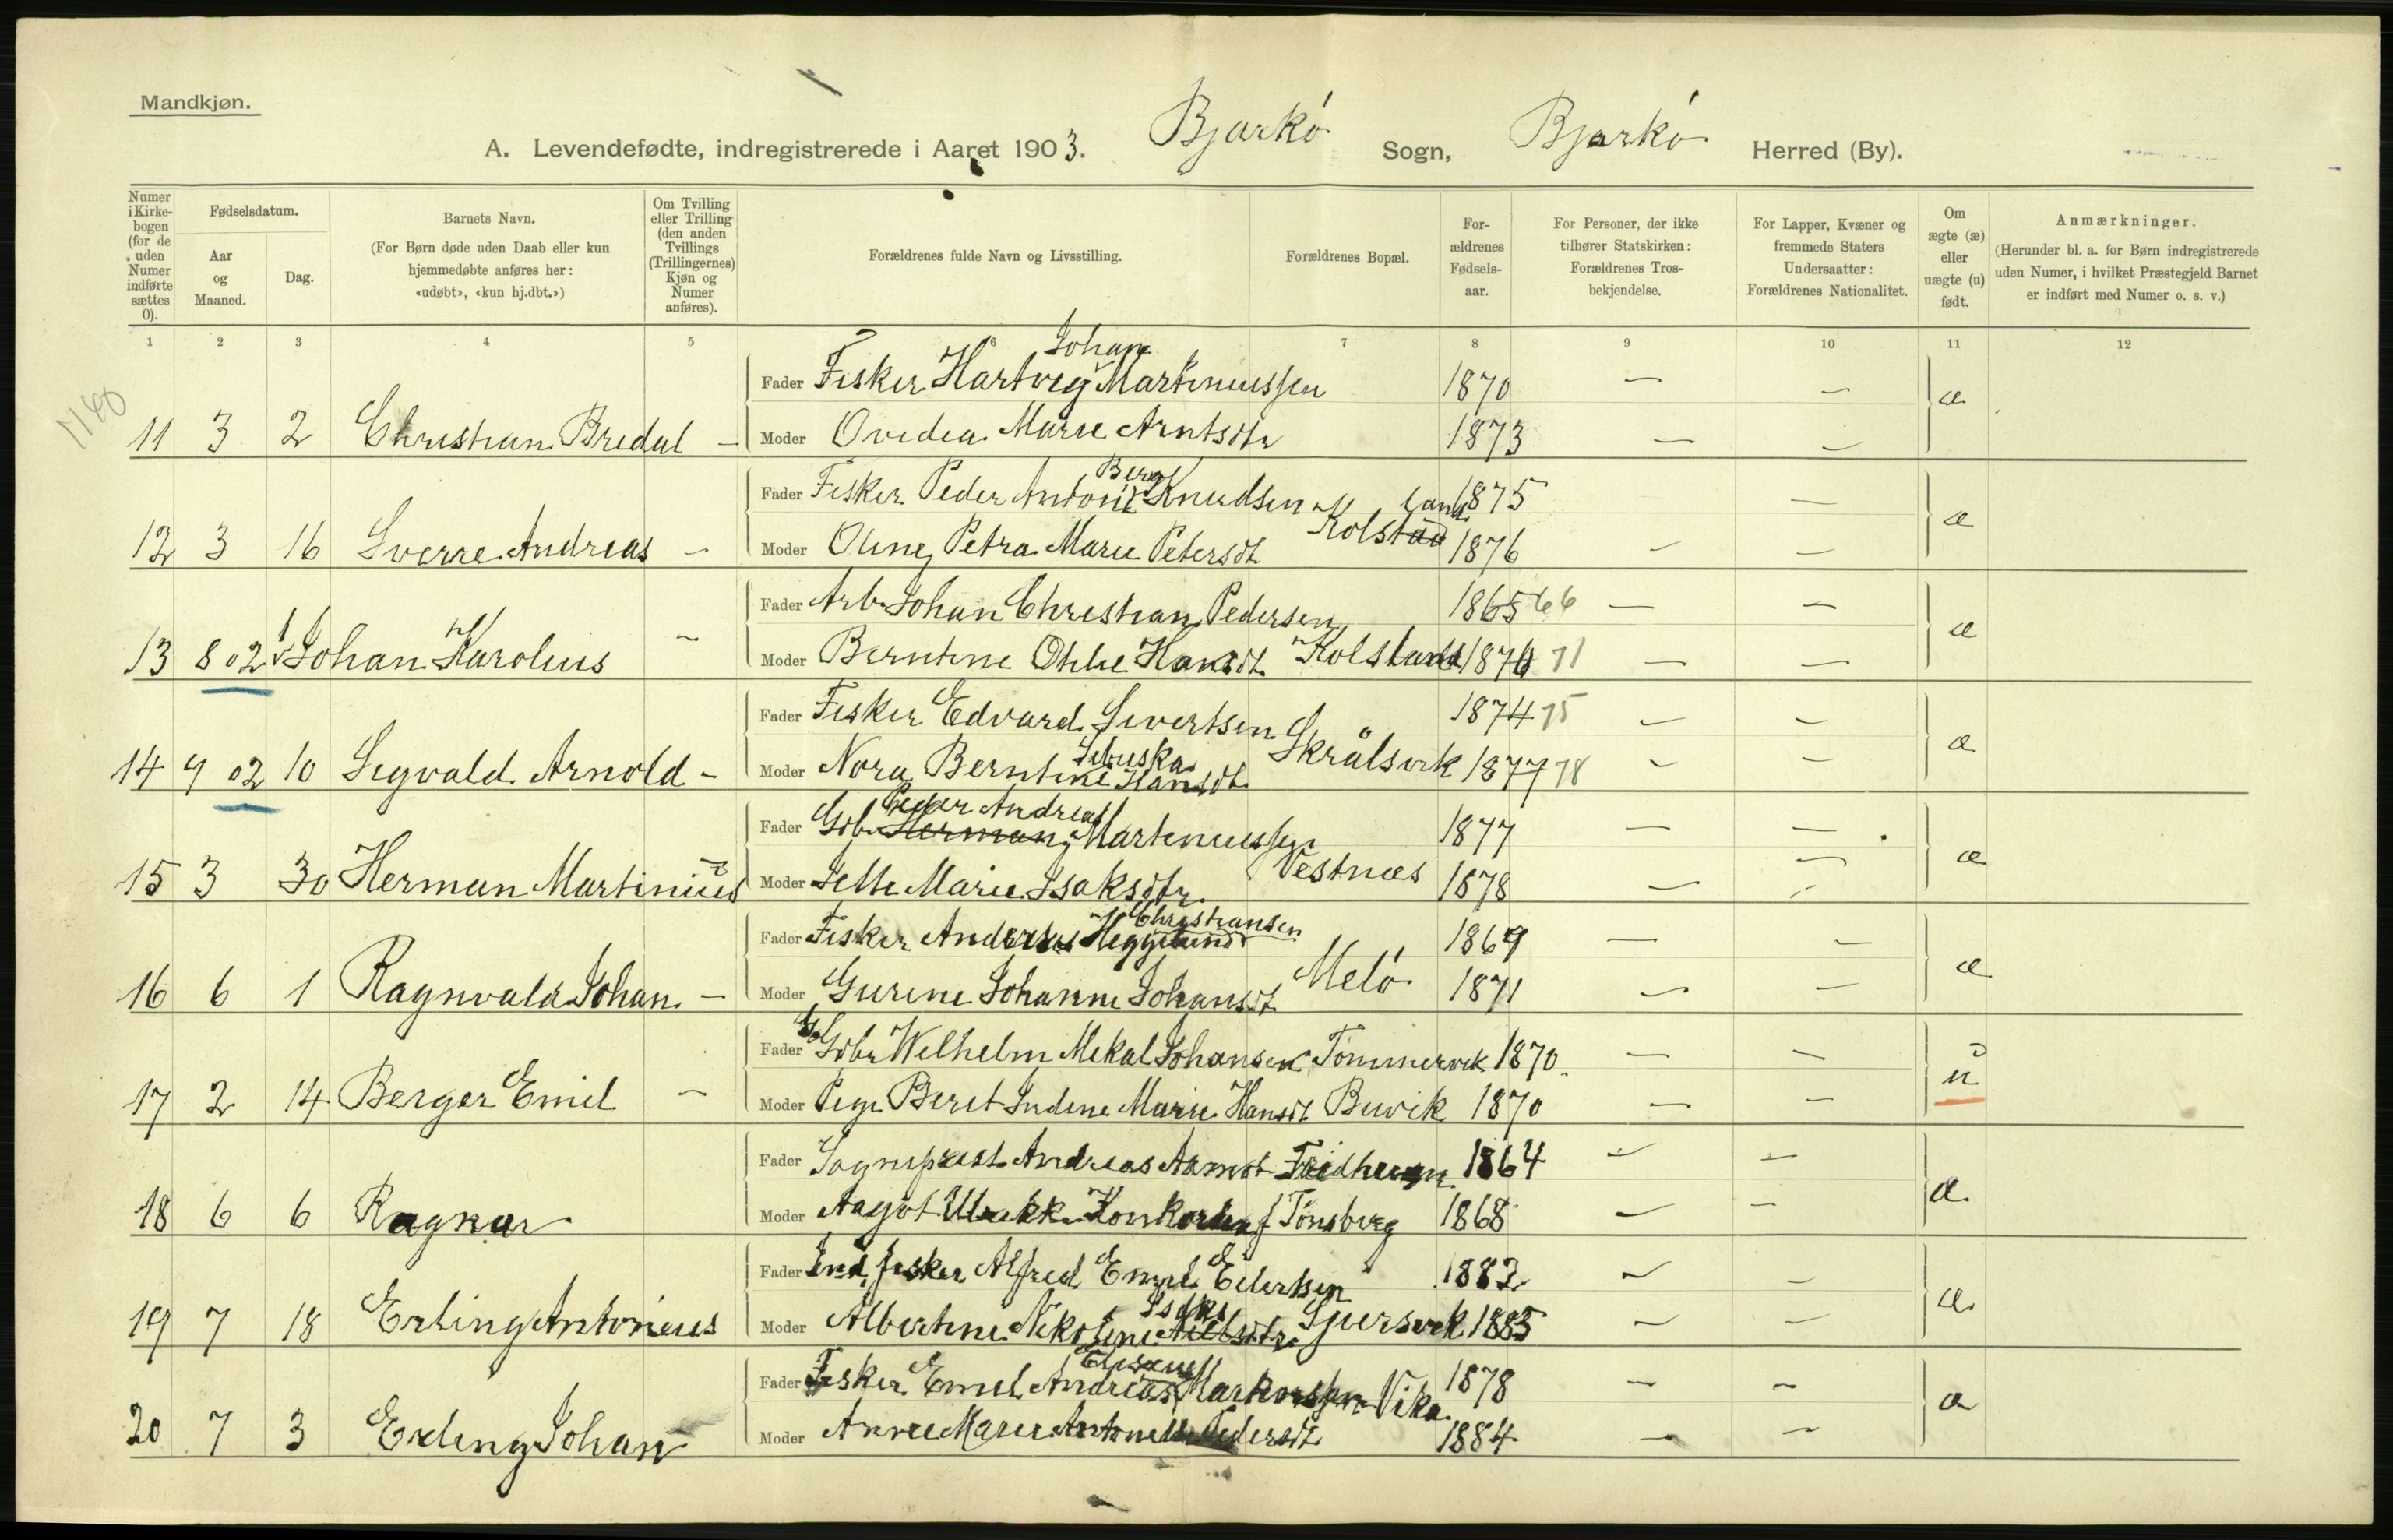 Mandkjøn.
A. Levendefødte, indregistrerede i Aaret 1903. Bjarkö Sogn, Bjarkö Herred (By).
Numer i Kirkebogen (for de uden Numer indførte sættes 0).
Fødselsdatum.
Aar og Maaned.
Dag.
Barnets Navn.
(For Børn døde uden Daab eller kun hjemmedøbte anføres her: «udøbt», «kun hj.dbt.»)
Om Tvilling eller Trilling (den anden Tvillings (Trillingernes) Kjøn og Numer anføres).
Forældrenes fulde Navn og Livsstilling.
Forældrenes Bopæl.
Forældrenes Fødselsaar.
For Personer, der ikke tilhører Statskirken: Forældrenes Trosbekjendelse.
For Lapper, Kvæner og fremmede Staters Undersaatter: Forældrenes Nationalitet.
Om ægte (æ) eller uægte (u) født.
Anmærkninger.
(Herunder bl. a. for Børn indregistrerede uden Numer, i hvilket Præstegjeld Barnet er indført med Numer o. s. v.)
1 2 3 4 5 6 7 8 9 10 11 12
1140
Johan
Fader Fisker Hartvig Martinussen 1870 — — æ
11 3 2 Christian Bredal — Moder Ovedia Marie Arntsdtr 1873 — —
Berg
Fader Fisker Peder Antoni Knudsen 1875 — æ
land
12 3 16 Sverre Andreas — Moder Oline Petra Marie Petersdt Kolstad 1876 — —
Fader Arb. Johan Christian Pedersen 1865 66 — — æ
13 8 02 1 Johan Karolius — Moder Berntine Otilie Hansdt. Kolstad 1870 71 — —
Fader Fisker Edvard Sivertsen 1874 75 — — æ
14 9 02 10 Sigvald Arnold — Moder Nora Berntine Hansdt. Skrålsvik 1877 78 — —
Peder Andreas
Fader Gbr. Herman Martinussen 1877 — — æ
15 3 30 Herman Martinius — Moder Jette Marie Isaksdtr. Vestnæs 1878 — —
Christiansen
Fader Fisker Andreas Heggelund 1869 — — æ
16 6 1 Ragnvald Johan — Moder Gurine Johanne Johansdt. Melö 1871 — —
Fader Gbr Wilhelm Mikal Johansen Tömmervik 1870 — — u
17 2 14 Berger Emil — Moder Pige Beret Indine Marie Hansdt Buvik 1870 — —
Fader Sogneprest Andreas Aamot Feidhem 1864 — — æ
18 6 6 Ragnar Moder Aagot f Tönsberg 1868 — —
Fader Ind, fisker Alfred Emil Eilertsen 1882 — — æ
Isaks
19 7 18 Erling Antonius Moder Albertine Nikoline Nilsdtr. Gjersvik 1885 — —
Elisæus
Fader Fisker Emil Andreas Markussen Vika 1878 — — æ
20 7 3 Erling Johan Moder Anne Marie Antonette Pedersdt 1884 — —